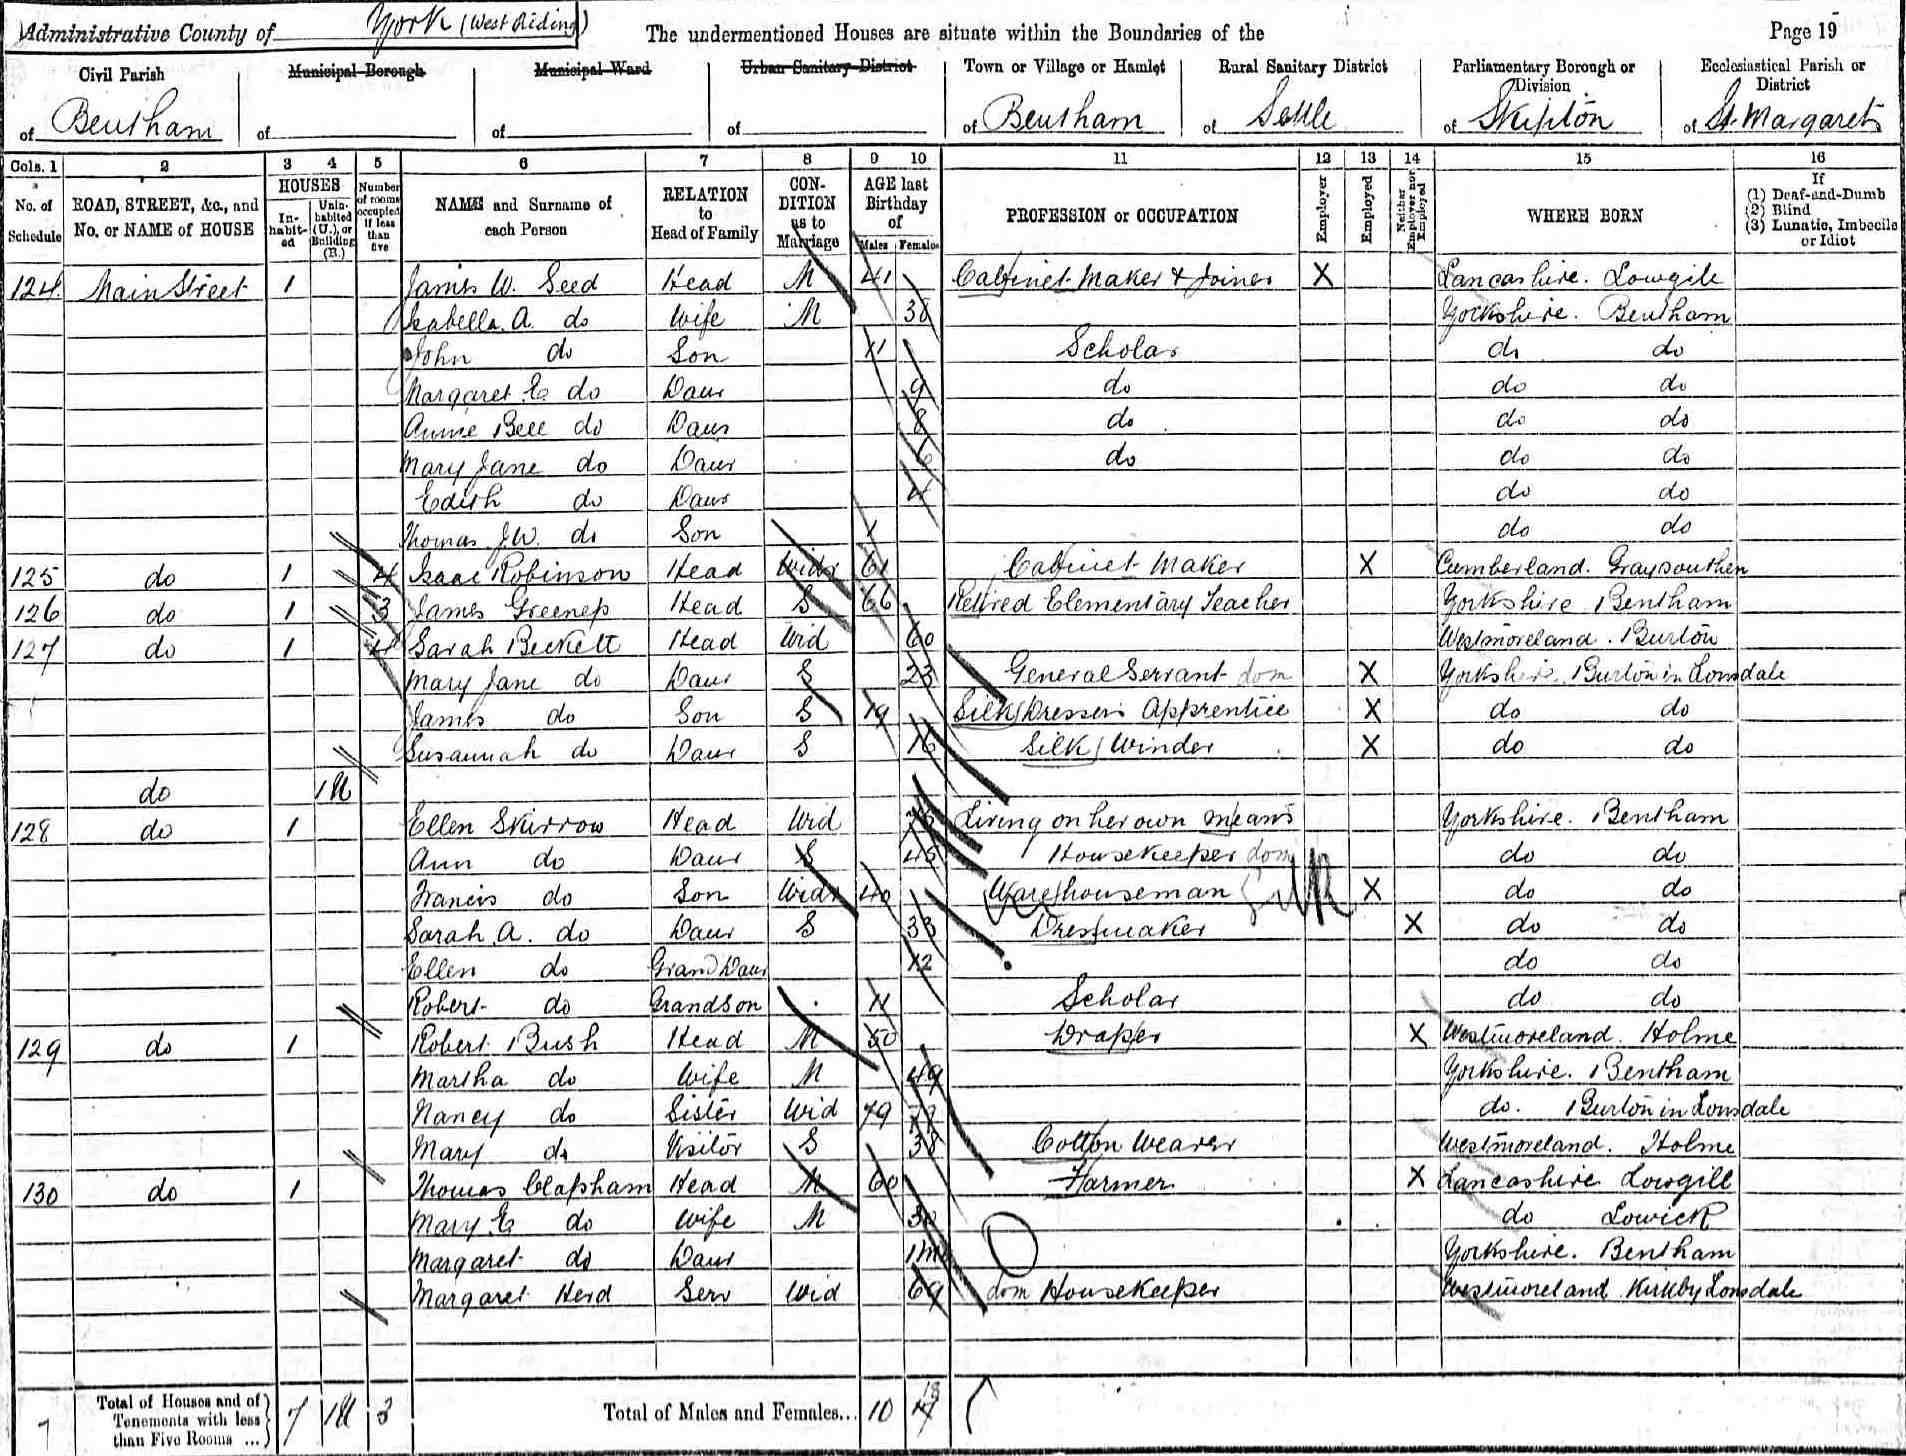 Administrative County of York (West Riding) The undermentioned Houses are situate within the Boundaries of the Page 19
Civil Parish Municipal Borough Municipal Ward Urban Sanitary District Town or Village or Hamlet Rural Sanitary District Parliamentary Borough or Division Ecclesiastical Parish or District
of Bentham of of of of Bentham of Settle of Skipton of St Margarets
Cols. 1 2 3 4 5 6 7 8 9 10 11 12 13 14 15 16
No. of Schedule ROAD, STREET, &c., and No. or NAME of HOUSE HOUSES In-habit-ed Unin-habited (U.), or Building (B.) Number of rooms occupied if less than five NAME and Surname of each Person RELATION to Head of Family CON-DITION as to Marriage AGE last Birthday of Males Females PROFESSION or OCCUPATION Employer Employed Neither Employer nor Employed WHERE BORN If (1) Deaf-and-Dumb (2) Blind (3) Lunatic, Imbecile or Idiot
124 Main Street 1 James W. Seed Head M 41 Cabinet Maker & Joiner X Lancashire. Lowgill
Isabella A. do Wife M 38 Yorkshire. Bentham
John do Son 11 Scholar do do
Margaret E do Daur 9 do do do
Annie Bell do Daur 8 do do do
Mary Jane do Daur 6 do do do
Edith do Daur 4 do do
Thomas J.W. do Son 1 do do
125 do 1 4 Isaac Robinson Head Widr 61 Cabinet Maker X Cumberland. Graysouthen
126 do 1 3 James Greenep Head S 66 Retired Elementary Teacher Yorkshire Bentham
127 do 1 4 Sarah Beckett Head Wid 60 Westmoreland. Burton
Mary Jane do Daur S 23 General Servant dom X Yorkshire. Burton in Lonsdale
James do Son S 19 Silk Dressers Apprentice X do do
Susannah do Daur S 16 Silk Winder X do do
do 1U
128 do 1 Ellen Skirrow Head Wid Living on her own means Yorkshire. Bentham
Ann do Daur S 45 Housekeeper dom do do
Francis do Son Widr 40 Warehouseman Silk X do do
Sarah A. do Daur S 33 Dressmaker X do do
Ellen do Grand Daur 12 do do
Robert do Grandson 11 Scholar do do
129 do 1 Robert Bush Head M 50 Draper X Westmoreland. Holme
Martha do Wife M 49 Yorkshire. Bentham
Nancy do Sister Wid 79 do. Burton in Lonsdale
Mary do Visitor S 38 Cotton Weaver Westmoreland. Holme
130 do 1 Thomas Clapham Head M 60 Farmer X Lancashire Lowgill
Mary E do Wife M 30 do Lowick
Margaret do Daur 1m Yorkshire. Bentham
Margaret Herd Serv Wid 69 dom Housekeeper Westmoreland Kirkby Lonsdale
7 Total of Houses and of Tenements with less than Five Rooms ... 7 1U 3 Total of Males and Females... 10 18